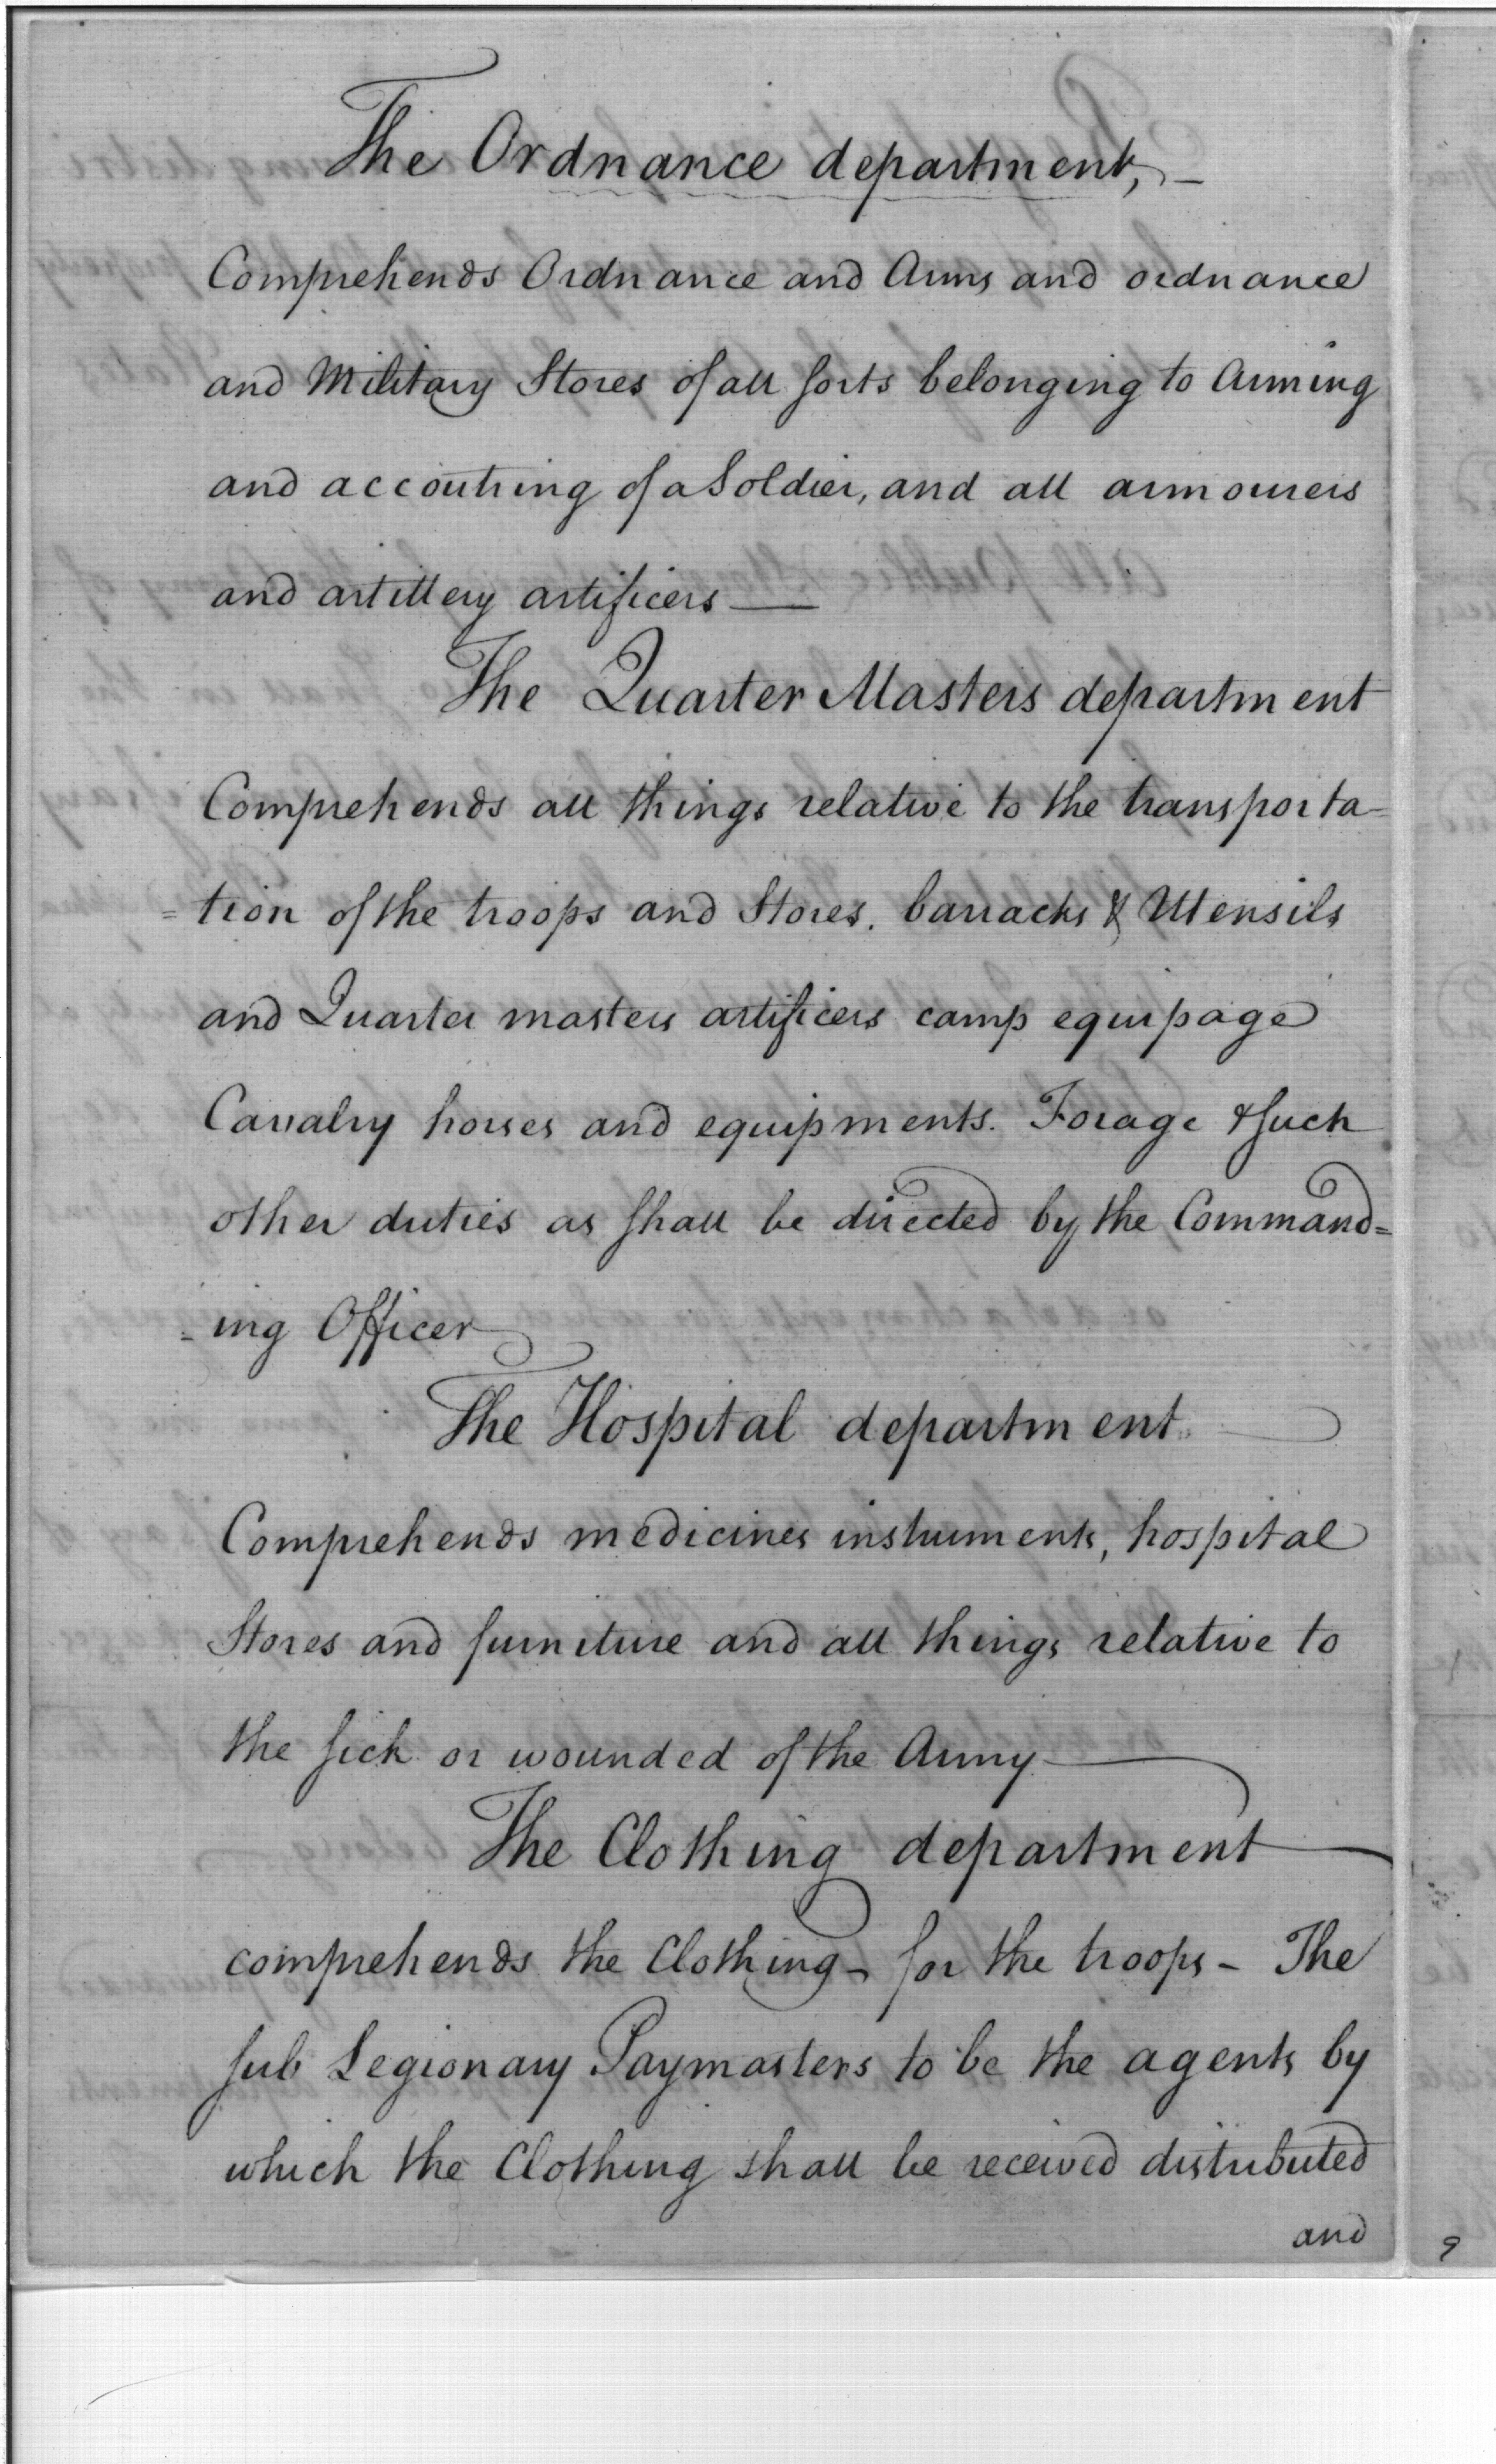 The Ordnance department, —
Comprehends Ordnance and Arms and ordnance
and Military Stores of all sorts belonging to Arming
and accoutring of a Soldier, and all armourers
and artillery artificers —
The Quarter Masters department
Comprehends all things relative to the transporta=
=tion of the troops and Stores. barracks & Utensils
and Quarter masters artificers camp equipage
Cavalry horses and equipments. Forage & such
other duties as shall be directed by the Command=
=ing Officer
The Hospital department
Comprehends medicines instruments, hospital
Stores and furniture and all things relative to
the sick or wounded of the Army —
The Clothing department —
comprehends the Clothing – for the troops – The
sub Legionary Paymasters to be the agents by
which the Clothing shall be received distributed
and
9